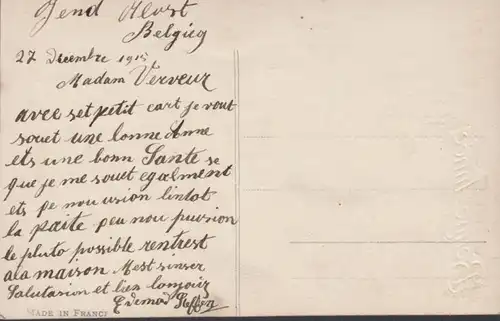 Jend Alost
Belgieg
27 Decembre 1915
Madam Verveur
avec set petit cart je vout
souet une bonne Anne
ets une bonn Sante se
que je me souet egalment
ets pe nou vsion bintot
la paite peu nou puvsion
le pluto possible rentrest
a la maison Mest sinser
Salutasion et bien bonjoir
Edemod Steffen
MADE IN FRANCE